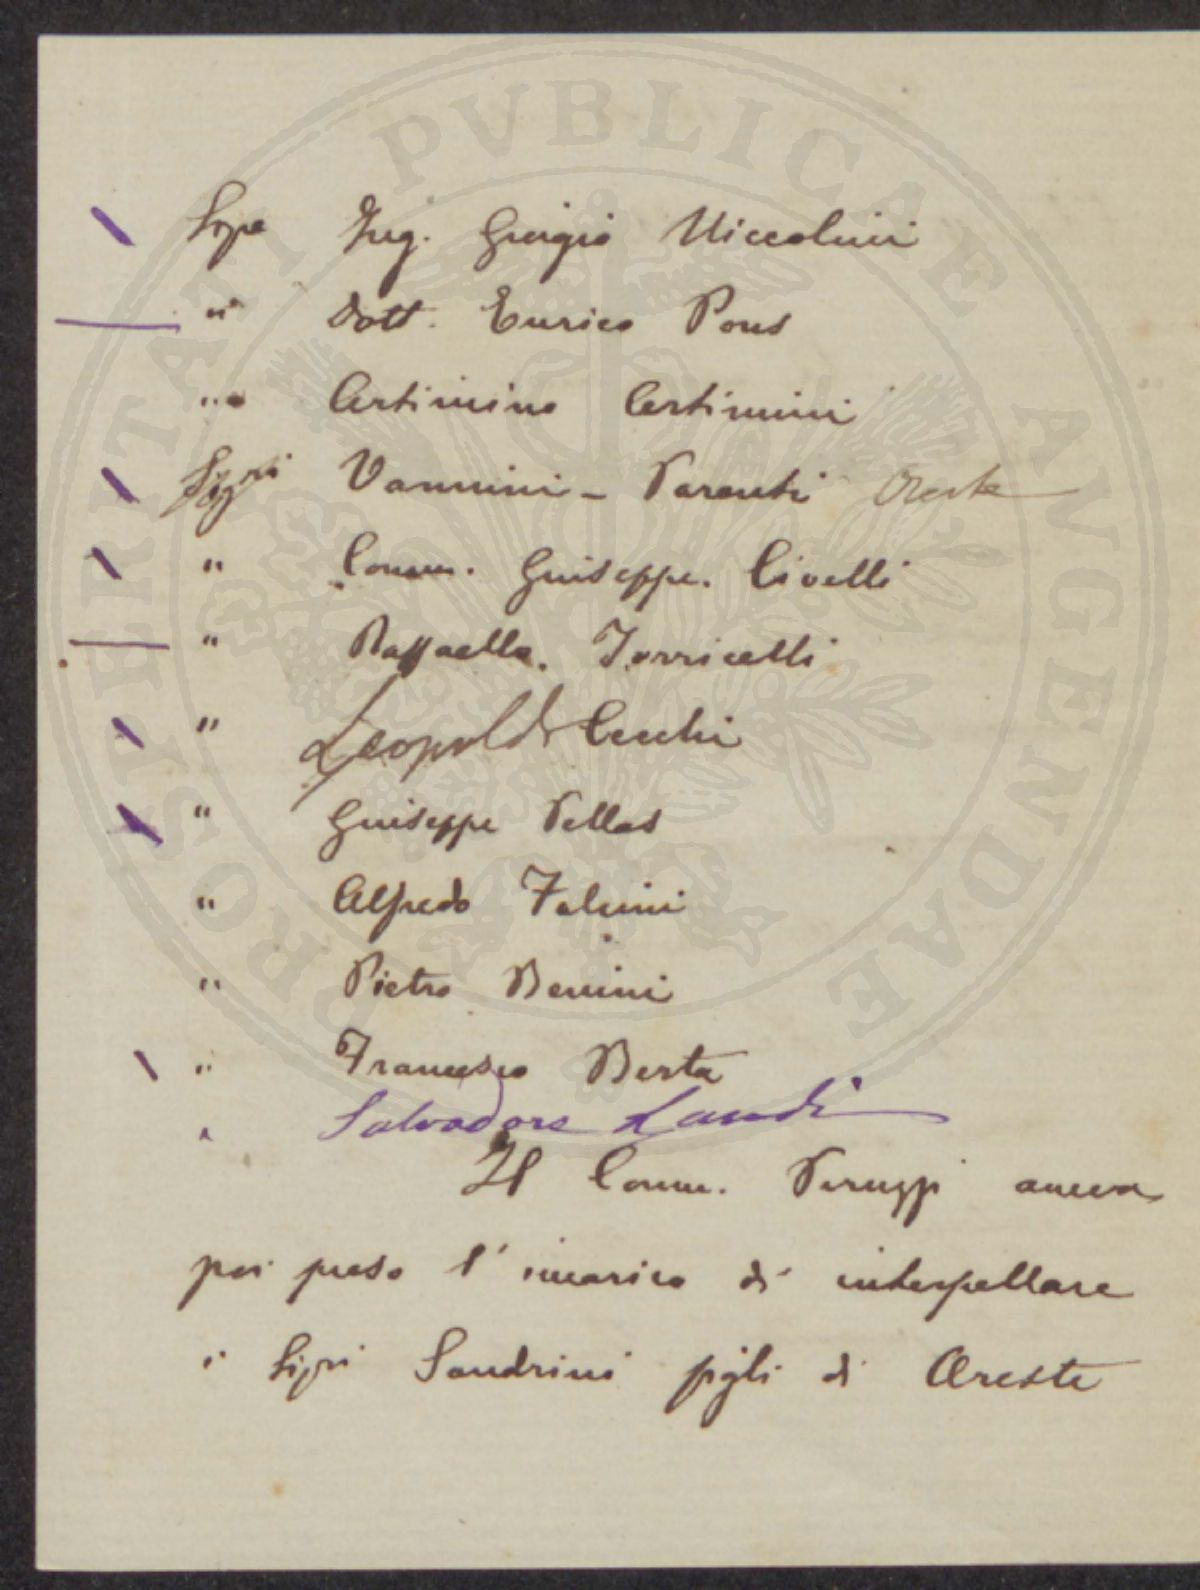 PROSPERITATI PVBLICAE AVGENDAE
Sigre Ing. Giorgio Niccolini
" Dott. Enrico Pons
" Artimino Artimini
Sigri Vannini - Parenti Oreste
" Comm. Giuseppe. Civelli
" Raffaello. Torricelli
" Leopoldo Cecchi
" Giuseppe Pellas
" Alfredo Falcini
" Pietro Benini
" Francesco Berta
" Salvadore Landi
Il Comm. Peruzzi aveva
poi preso l'incarico di interpellare
i Sigri Sandrini figli di Oreste